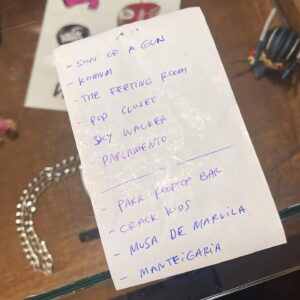 - SON OF A GUN
- KOMUM
- THE FEETING ROOM
- POP CLOSET
SKY WALKER
- PARLAMENTO
- PARK ROOFTOP BAR
- CRACK KIDS
- MUSA DE MARVILA
- MANTEIGARIA